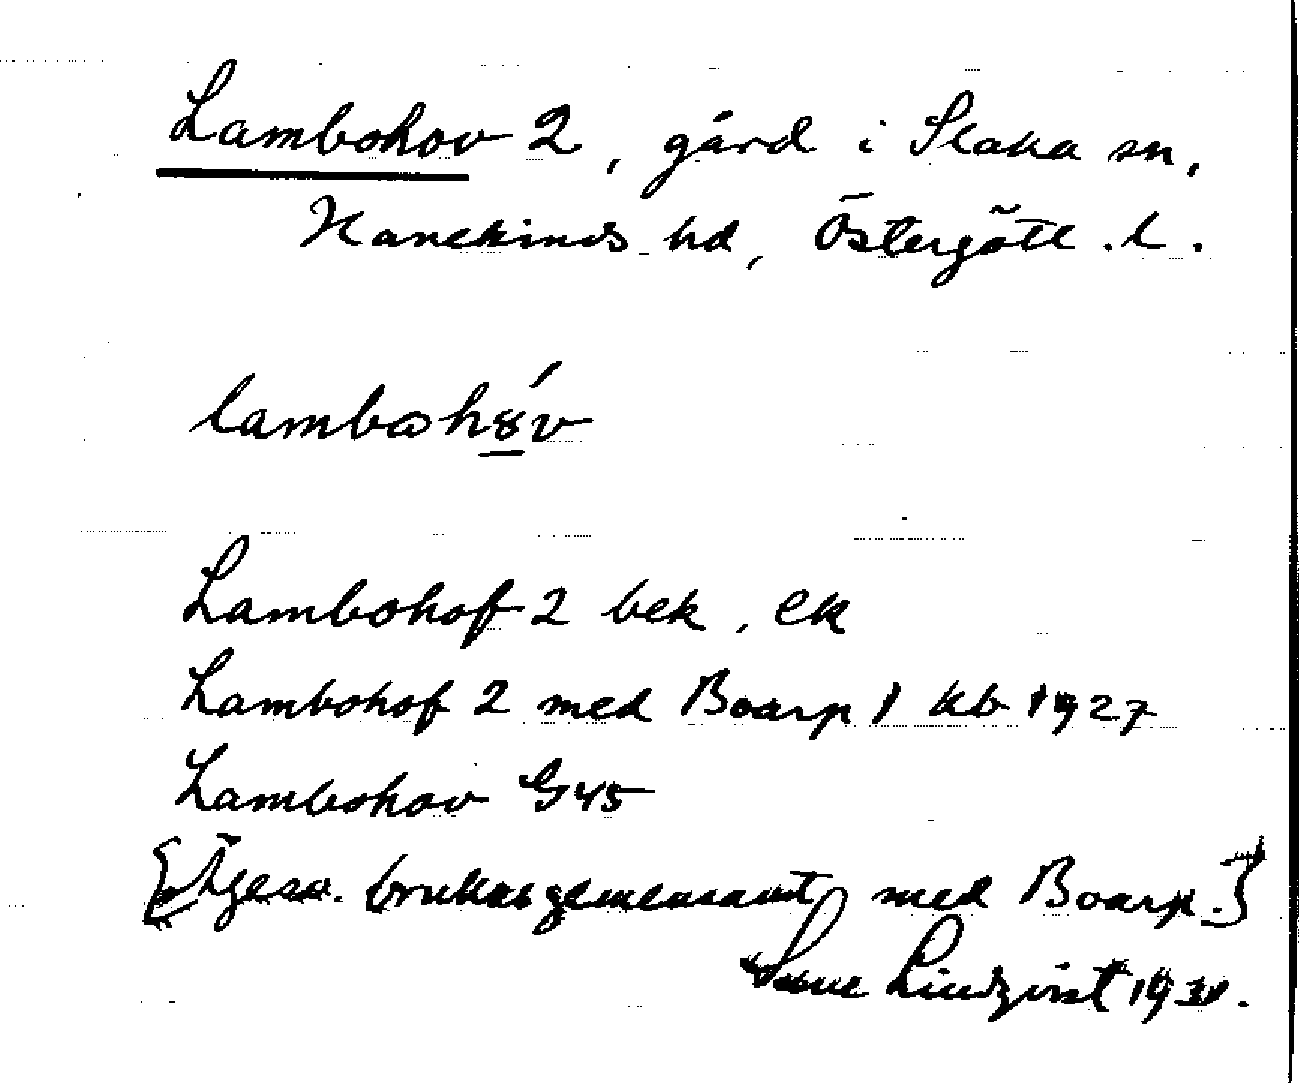 Lambohov 2, gård i Slaka sn,
Hanekinds hd, Östergötl. l.
lambohȣ́v
Lambohof 2 bek, ek
Lambohof 2 med Boarp 1 kb 1927
Lambohov G45
[Äges o. brukas gemensamt med Boarp.]
Sune Lindqvist 19